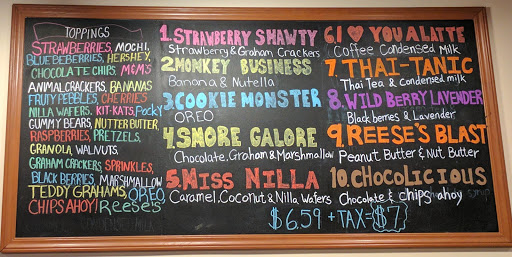 TOPPINGS
STRAWBERRIES, MOCHI,
BLUEBEBERRIES, HERSHEY,
CHOCOLATE CHIPS, M&MS
ANIMAL CRACKERS, BANANAS
FRUITY PEBBLES, CHERRIES
NILLA WAFERS, KIT-KATS, Pocky
GUMMY BEARS, NUTTER BUTTER,
RASPBERRIES, PRETZELS,
GRANOLA, WALNUTS,
GRAHAM CRACKERS, SPRINKLES,
BLACK BERRIES, MARSHMALLOW
TEDDY GRAHAMS, OREO,
CHIPS AHOY! Reese's
1. STRAWBERRY SHAWTY
Strawberry & Graham Crackers
2. MONKEY BUSINESS
Banana & Nutella
3. COOKIE MONSTER
OREO
4. SMORE GALORE
Chocolate, Graham & Marshmallow
5. MISS NILLA
Caramel, Coconut & Nilla Wafers
6. I ♥ YOU A LATTE
Coffee Condensed Milk
7. THAI-TANIC
Thai Tea & Condensed milk
8. WILD BERRY LAVENDER
Blackberries & Lavender
9. REESE'S BLAST
Peanut Butter & Nut Butter
10. CHOCOLICIOUS
Chocolate & chips ahoy syrup
$6.59 + TAX = $7